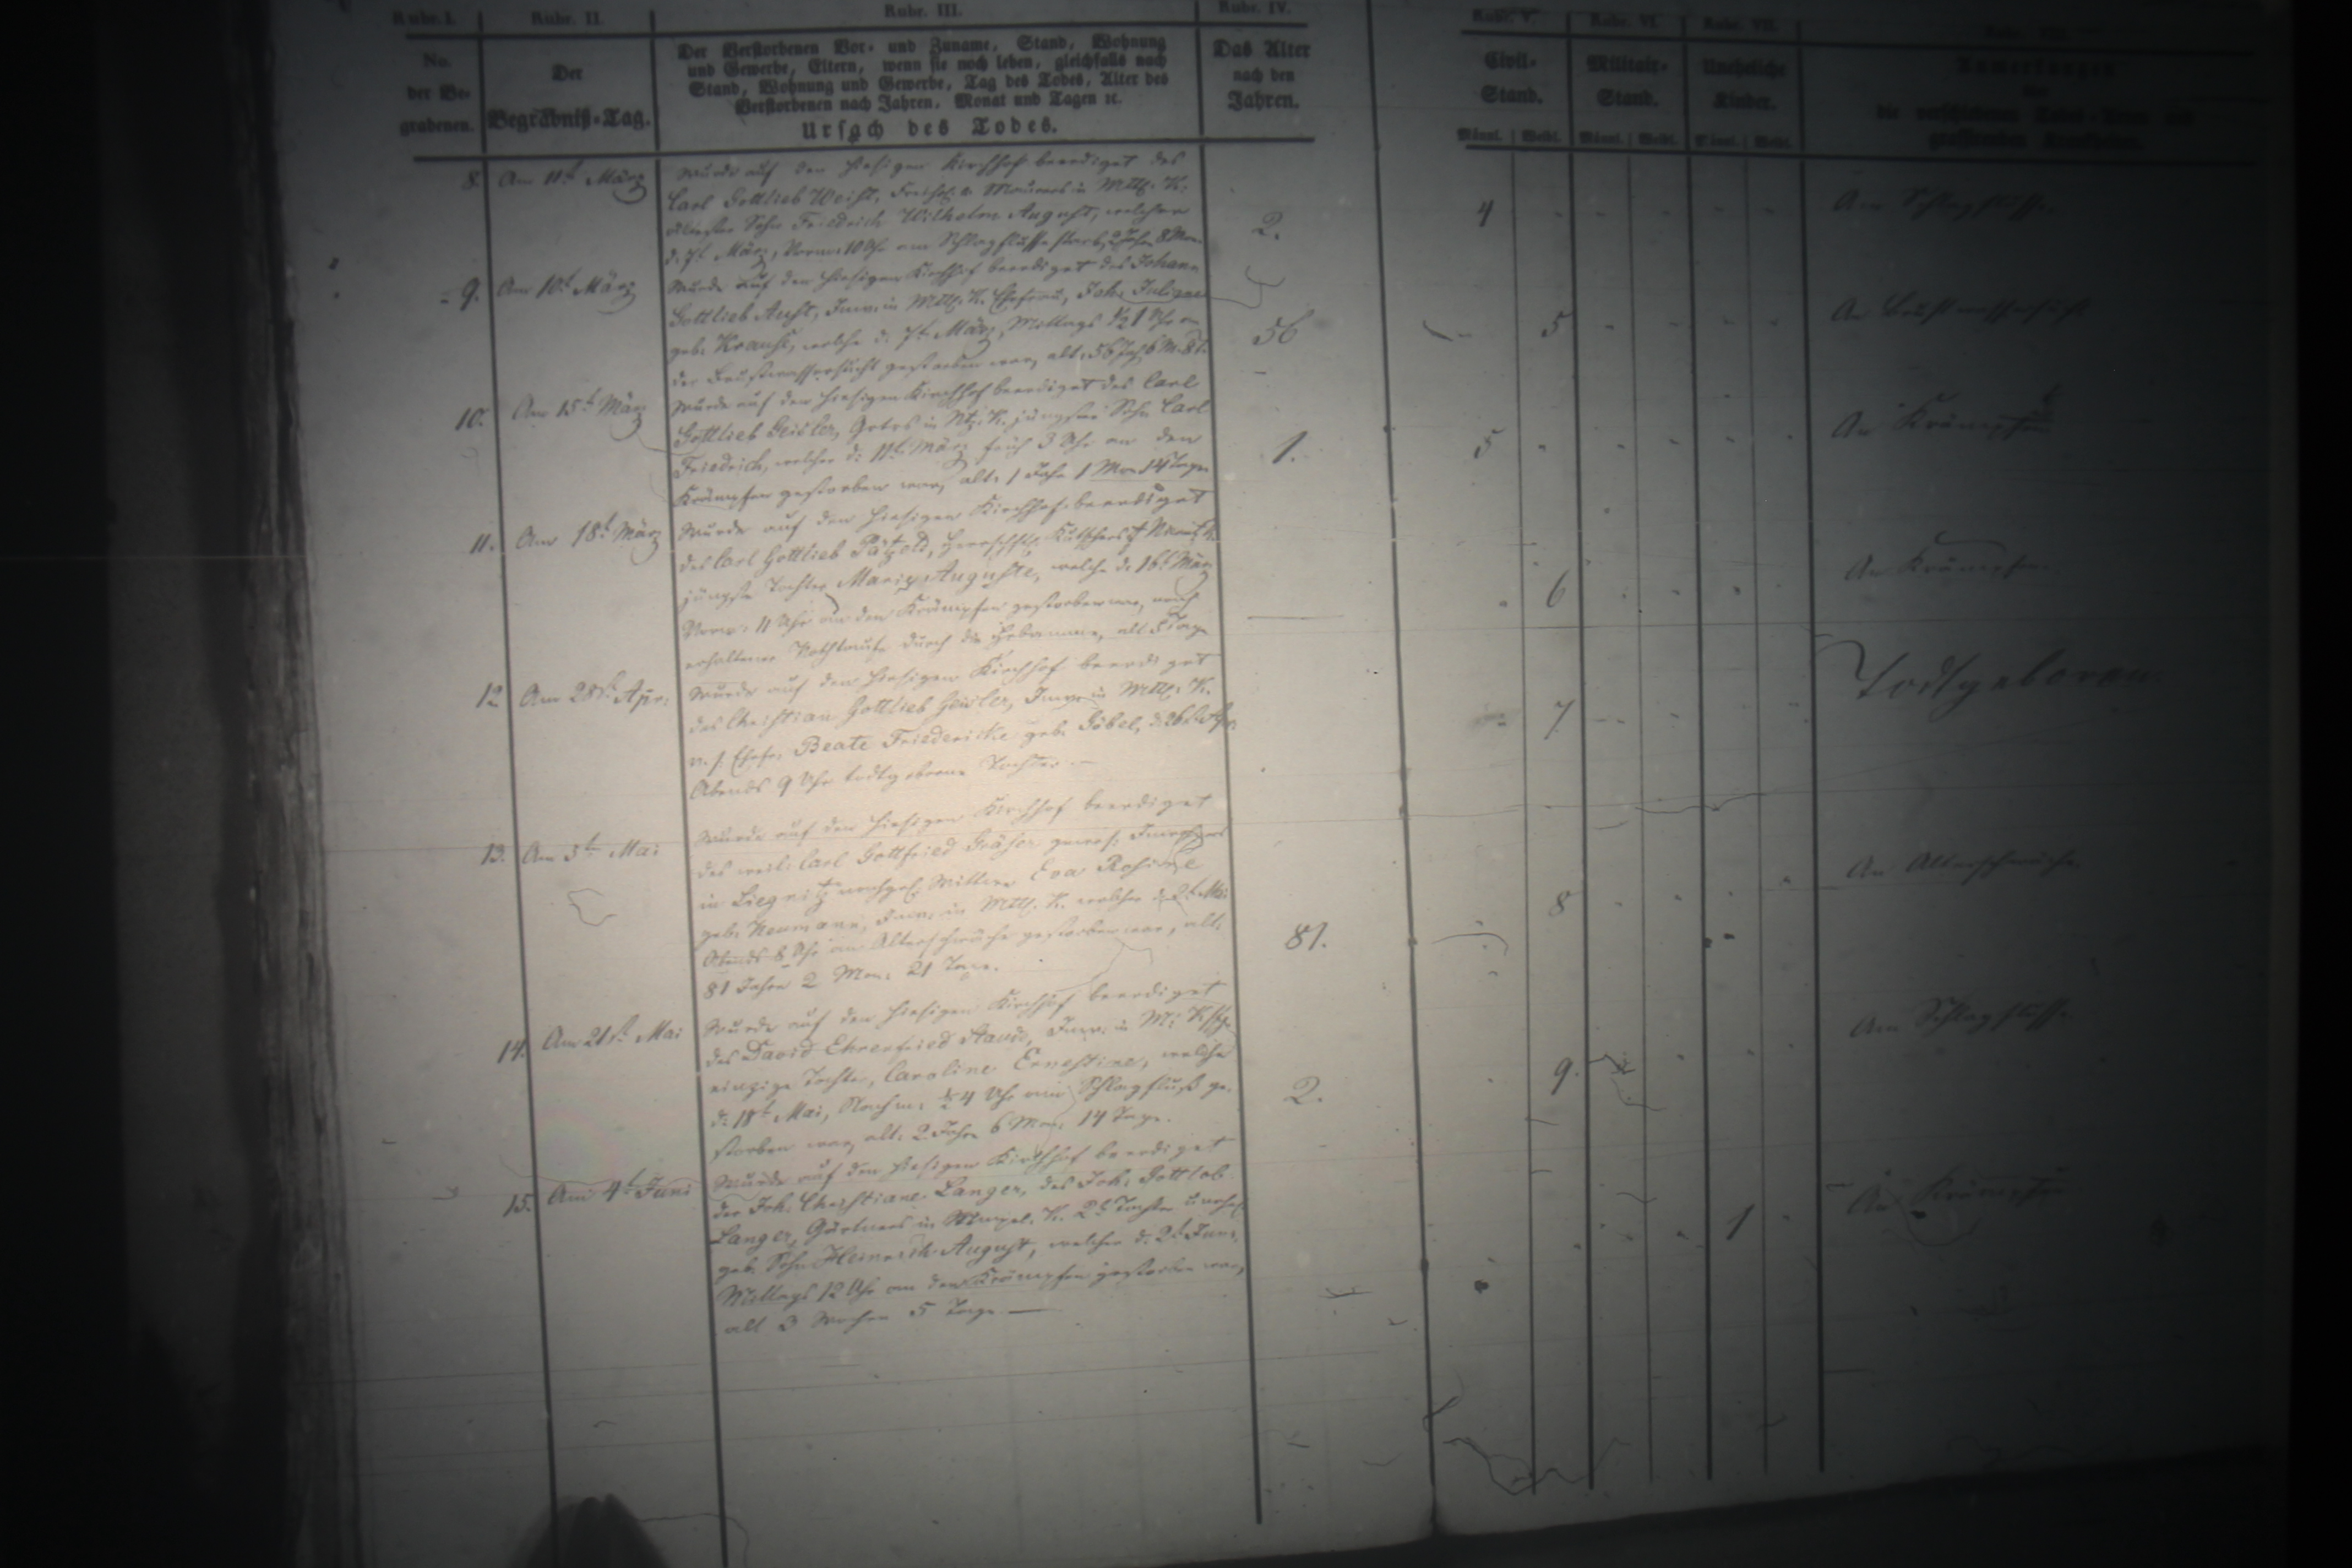 Rubr. I. Rubr. II. Rubr. III. Rubr. IV. Rubr. V. Rubr. VI. Rubr. VII.
No. der Begrabenen.
Der Begräbniß-Tag.
Der Verstorbenen Vor- und Zuname, Stand, Wohnung
und Gewerbe, Eltern, wenn sie noch leben, gleichfalls nach
Stand, Wohnung und Gewerbe, Tag des Todes, Alter des
Verstorbenen nach Jahren, Monat und Tagen ꝛc.
Ursach des Todes.
Das Alter nach den Jahren.
Civil-Stand.
Militair-Stand.
Uneheliche Kinder.
Männl. Weibl. Männl. Weibl. Männl. Weibl.
8. Am 11t März wurde auf den hiesigen Kirchhof beerdiget des
Carl Gottlieb Weist, u. Maurers in Mttl. K.
ältester Sohn Friedrich Wilhelm August, welcher
d. 7t März, Vorm. 10 Uhr am Schlagflusse starb, 2 Jahr 8 Mon.
2. 4 Am Schlagflusse
9. Am 10t März wurde auf den hiesigen Kirchhof beerdiget des Johann
Gottlieb Aust, Inw. in Mttl. K. Ehefrau, Joh. Juliane
geb. Krause, welche d. 7t März, Mittags ½1 Uhr an
der Brustwassersucht gestorben war, alt 56 Jah. 6 M. 8 t.
56 5 An Brustwassersucht
10. Am 15t März wurde auf den hiesigen Kirchhof beerdiget des Carl
Gottlieb Geisler, in K. jüngster Sohn Carl
Friedrich, welcher d. 11t März früh 3 Uhr an den
Krämpfen gestorben war, alt. 1 Jahr 1 Mon 14 Tage
1. 5 An Krämpfen
11. Am 18t März wurde auf den hiesigen Kirchhof beerdiget
des Carl Gottlieb Pätzold, herrschftl. Kutschers
jüngste Tochter Marie Auguste, welche d. 16t März
Vorm. 11 Uhr an den Krämpfen gestorben war, nach
erhaltener Nothtaufe durch die Hebamme, alt 5 Tage
6 An Krämpfen
12 Am 28st. Apr. wurde auf den hiesigen Kirchhof beerdiget
des Christian Gottlieb Geisler, Inw. in Mttl. K.
u. s. Ehefr. Beate Friedericke geb. Göbel, d. 26st. Apr.
Abends 9 Uhr todtgeborene Tochter. —
7 Todtgeboren
13. Am 5t Mai wurde auf den hiesigen Kirchhof beerdiget
des weil. Carl Gottfried Gräser gewes. Inwohners
in Liegnitz Wittwe Eva Rosine
geb. Neumann, Inw. in Mttl. K. welche d. 2t Mai
Abends 6 Uhr an Altersschwäche gestorben war, alt.
81 Jahre 2 Mon. 21 Tage.
81. 8 An Altersschwäche
14. Am 21st. Mai wurde auf den hiesigen Kirchhof beerdiget
des David Ehrenfried Inw. in
einzige Tochter, Caroline Ernestine, welche
d. 18t Mai, Nachm. 4 Uhr am Schlagfluß ge-
storben war, alt. 2 Jahr 6 Mon. 14 Tage.
2. 9. Am Schlagflusse
15. Am 4t Juni wurde auf den hiesigen Kirchhof beerdiget
der Joh. Christiane Langer, des Joh. Gottlob
Langer, Gärtners in K. 2t Tochter unehel.
geb. Sohn Heinrich August, welcher d. 2t Juni
Mittags 12 Uhr an den Krämpfen gestorben war,
alt 3 Wochen 5 Tage —
1 An Krämpfen